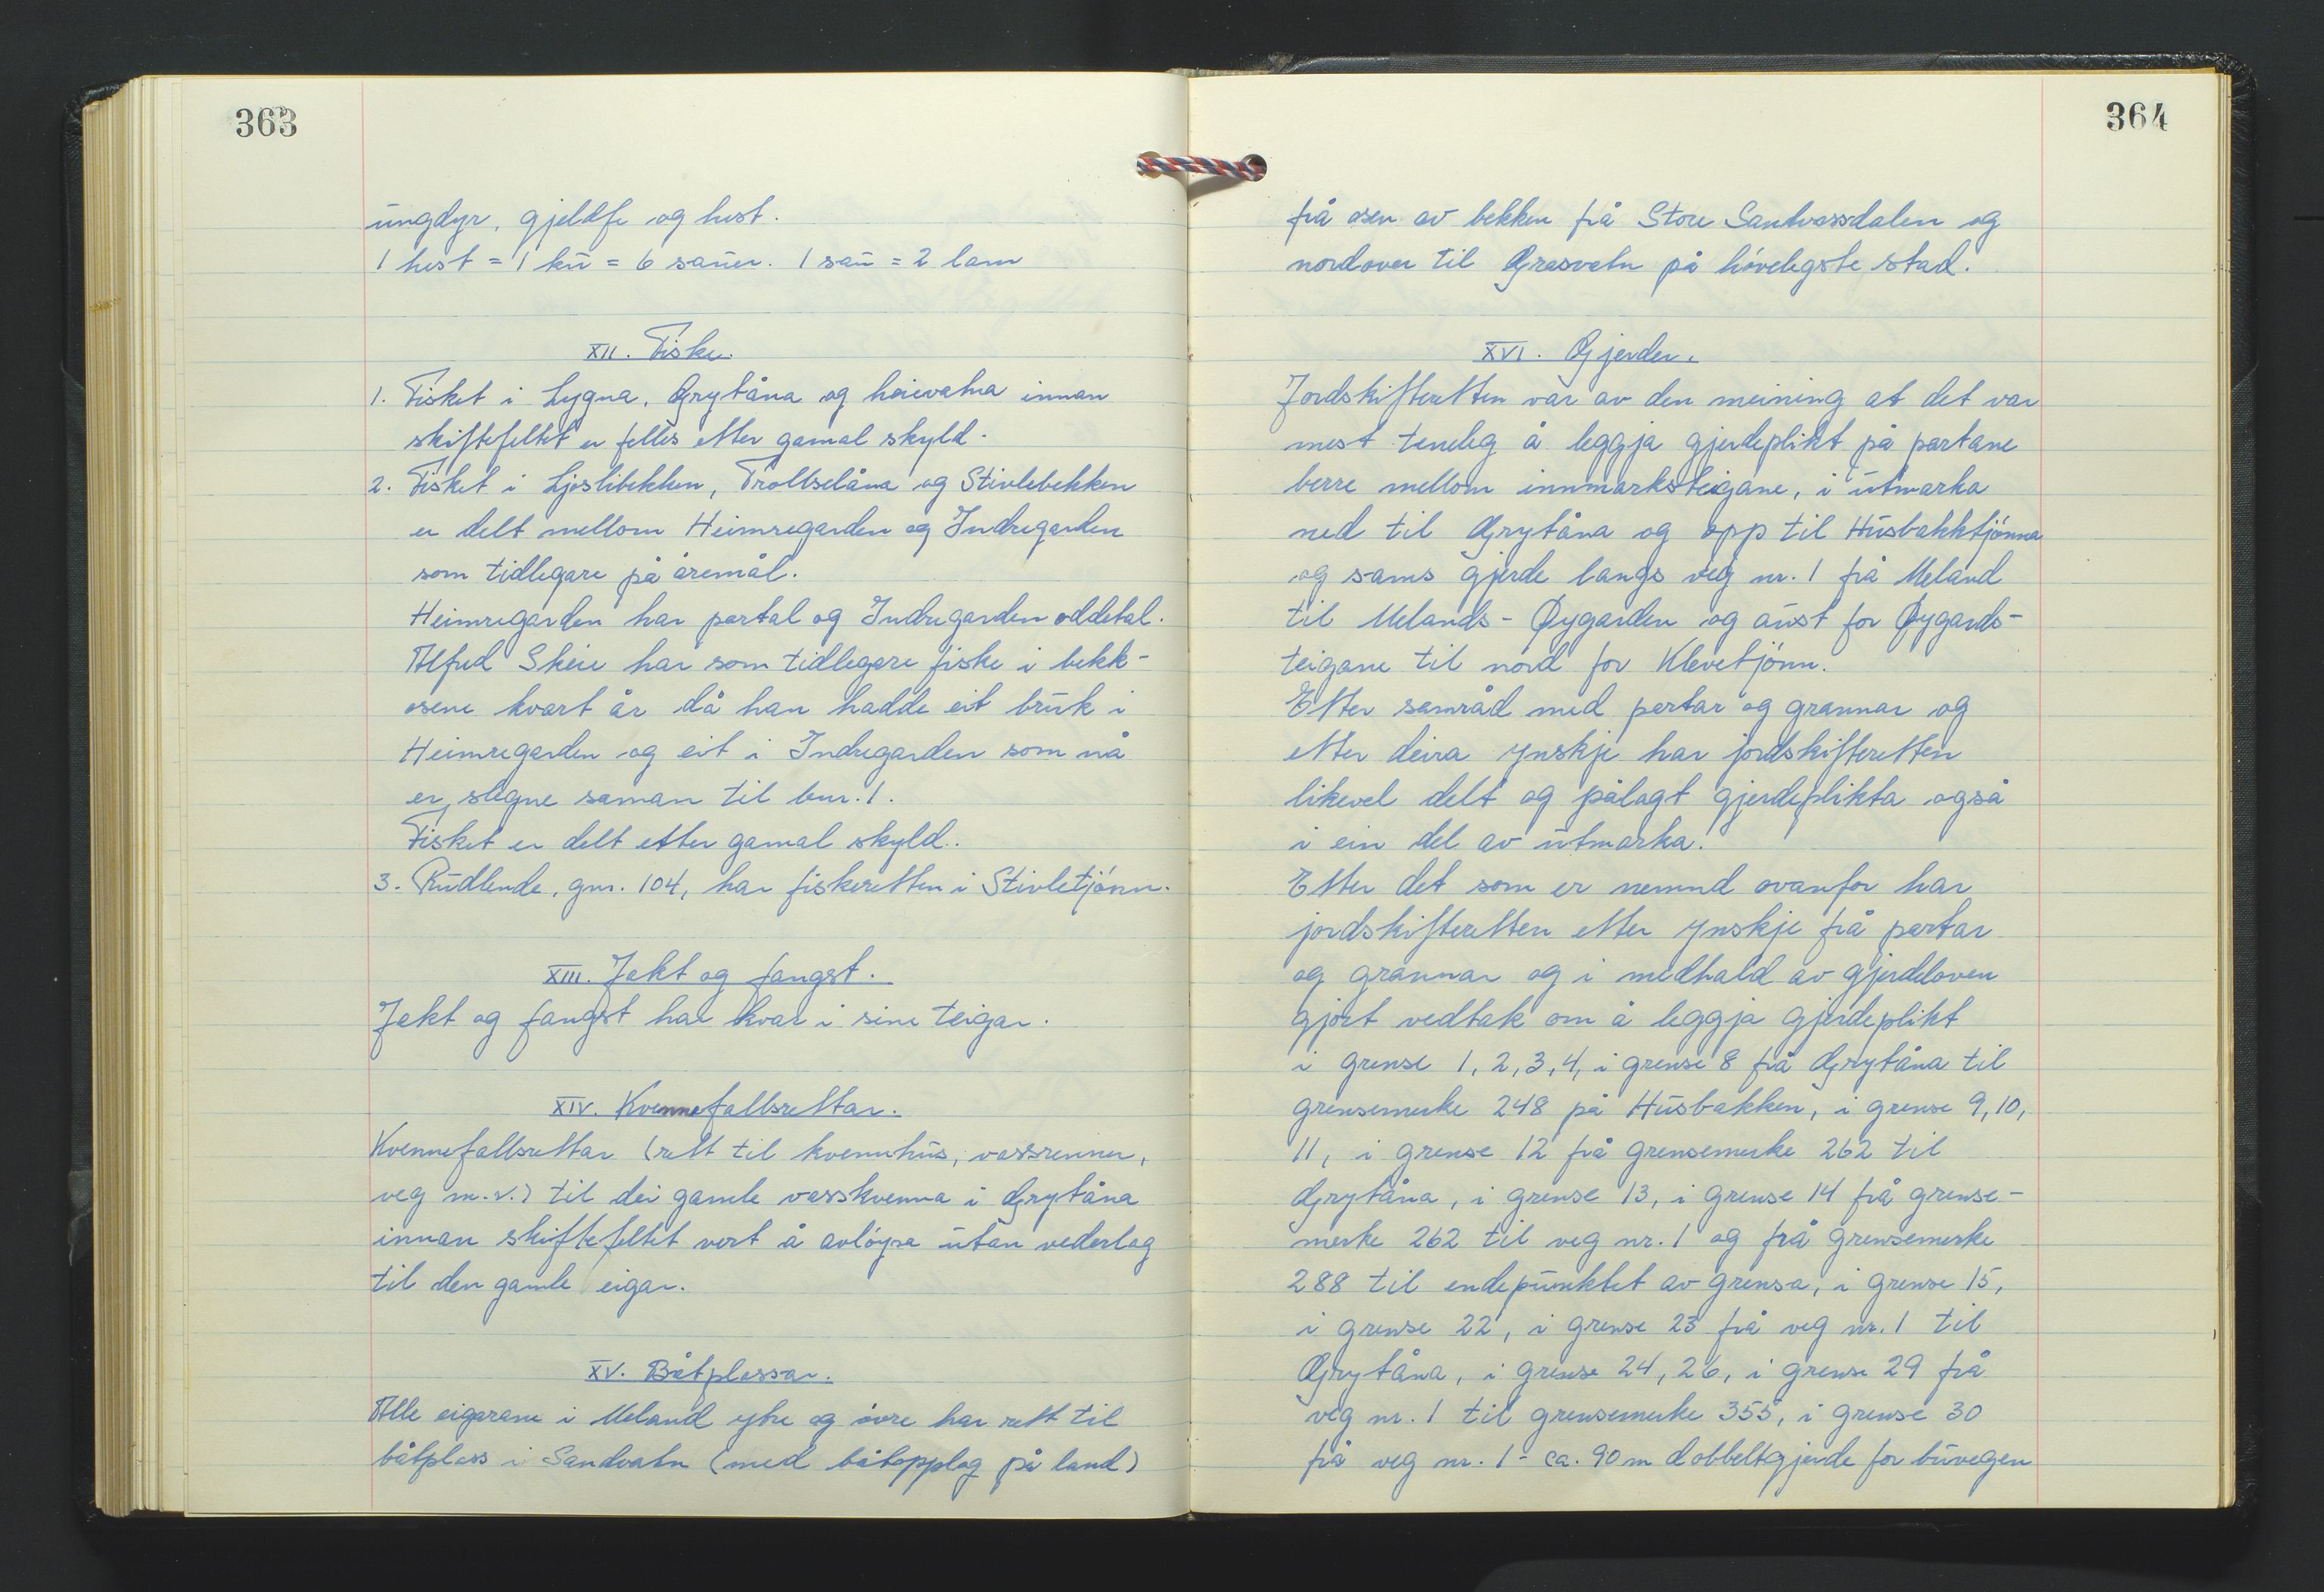 363
ungdyr, gjeldfe og hest.
1 hest = 1 ku = 6 sauer. 1 sau = 2 lam
XII. Fiske.
1. Fisket i Lygna, Grytåna og heievatna innan
skiftefeltet er felles etter gamal skyld.
2. Fisket i Ljoslibekken, Trollselåna og Stivlebekken
er delt mellom Heimregarden og Indregarden
som tidlegare på åremål.
Heimregarden har partal og Indregarden oddetal.
Alfred Skeie har som tidlegare fiske i bekk-
osene kvart år då han hadde eit bruk i
Heimregarden og eit i Indregarden som nå
er slegne saman til bnr. 1.
Fisket er delt etter gamal skyld.
3. Rudlende, gnr. 104, har fiskeretten i Stivletjønn.
XIII. Jakt og fangst.
Jakt og fangst har kvar i sine teigar.
XIV. Kvennefallsrettar.
Kvennefallsrettar (rett til kvennhus, vassrenner,
veg m.v.) til dei gamle vasskvenna i Grytåna
innan skiftefeltet vert å avløysa utan vederlag
til den gamle eigar.
XV. Båtplassar.
Alle eigarane i Meland ytre og øvre har rett til
båtplass i Sandvatn (med båtopplag på land)
364
frå osen av bekken frå Store Sandvassdalen og
nordover til Grasvatn på høvelegste stad.
XVI. Gjerder.
Jordskifteretten var av den meining at det var
mest teneleg å leggja gjerdeplikt på partane
berre mellom innmarksteigane, i utmarka
ned til Grytåna og opp til Husbakktjønna
og sams gjerde langs veg nr. 1 frå Meland
til Melands-Øygarden og aust for Øygards-
teigane til nord for Klevetjønn.
Etter samråd med partar og grannar og
etter deira ynskje har jordskifteretten
likevel delt og pålagt gjerdeplikta også
i ein del av utmarka.
Etter det som er nemnd ovanfor har
jordskifteretten etter ynskje frå partar
og grannar og i medhald av gjerdeloven
gjort vedtak om å leggja gjerdeplikt
i grense 1, 2, 3, 4, i grense 8 frå Grytåna til
grensemerke 248 på Husbakken, i grense 9, 10,
11, i grense 12 frå grensemerke 262 til
Grytåna, i grense 13, i grense 14 frå grense-
merke 262 til veg nr. 1 og frå grensemerke
288 til endepunktet av grensa, i grense 15,
i grense 22, i grense 23 frå veg nr. 1 til
Grytåna, i grense 24, 26, i grense 29 frå
veg nr. 1 til grensemerke 355, i grense 30
frå veg nr. 1 - ca. 90 m dobbeltgjerde for buvegen